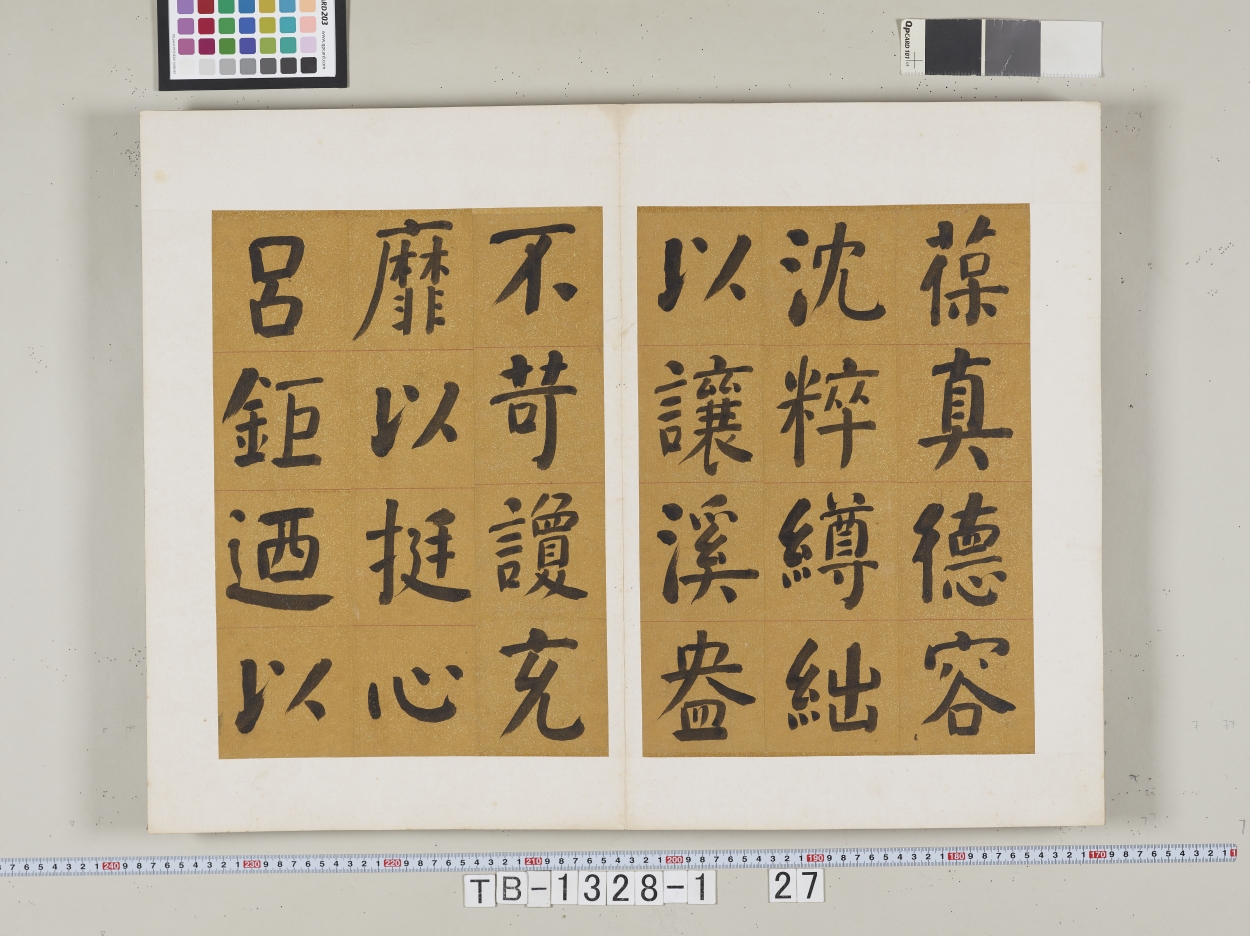 葆真德容
沈粹縛絀
以讓溪盎
不苛謾充
靡以挺心
呂鉅迺以
TB-1328-1 27